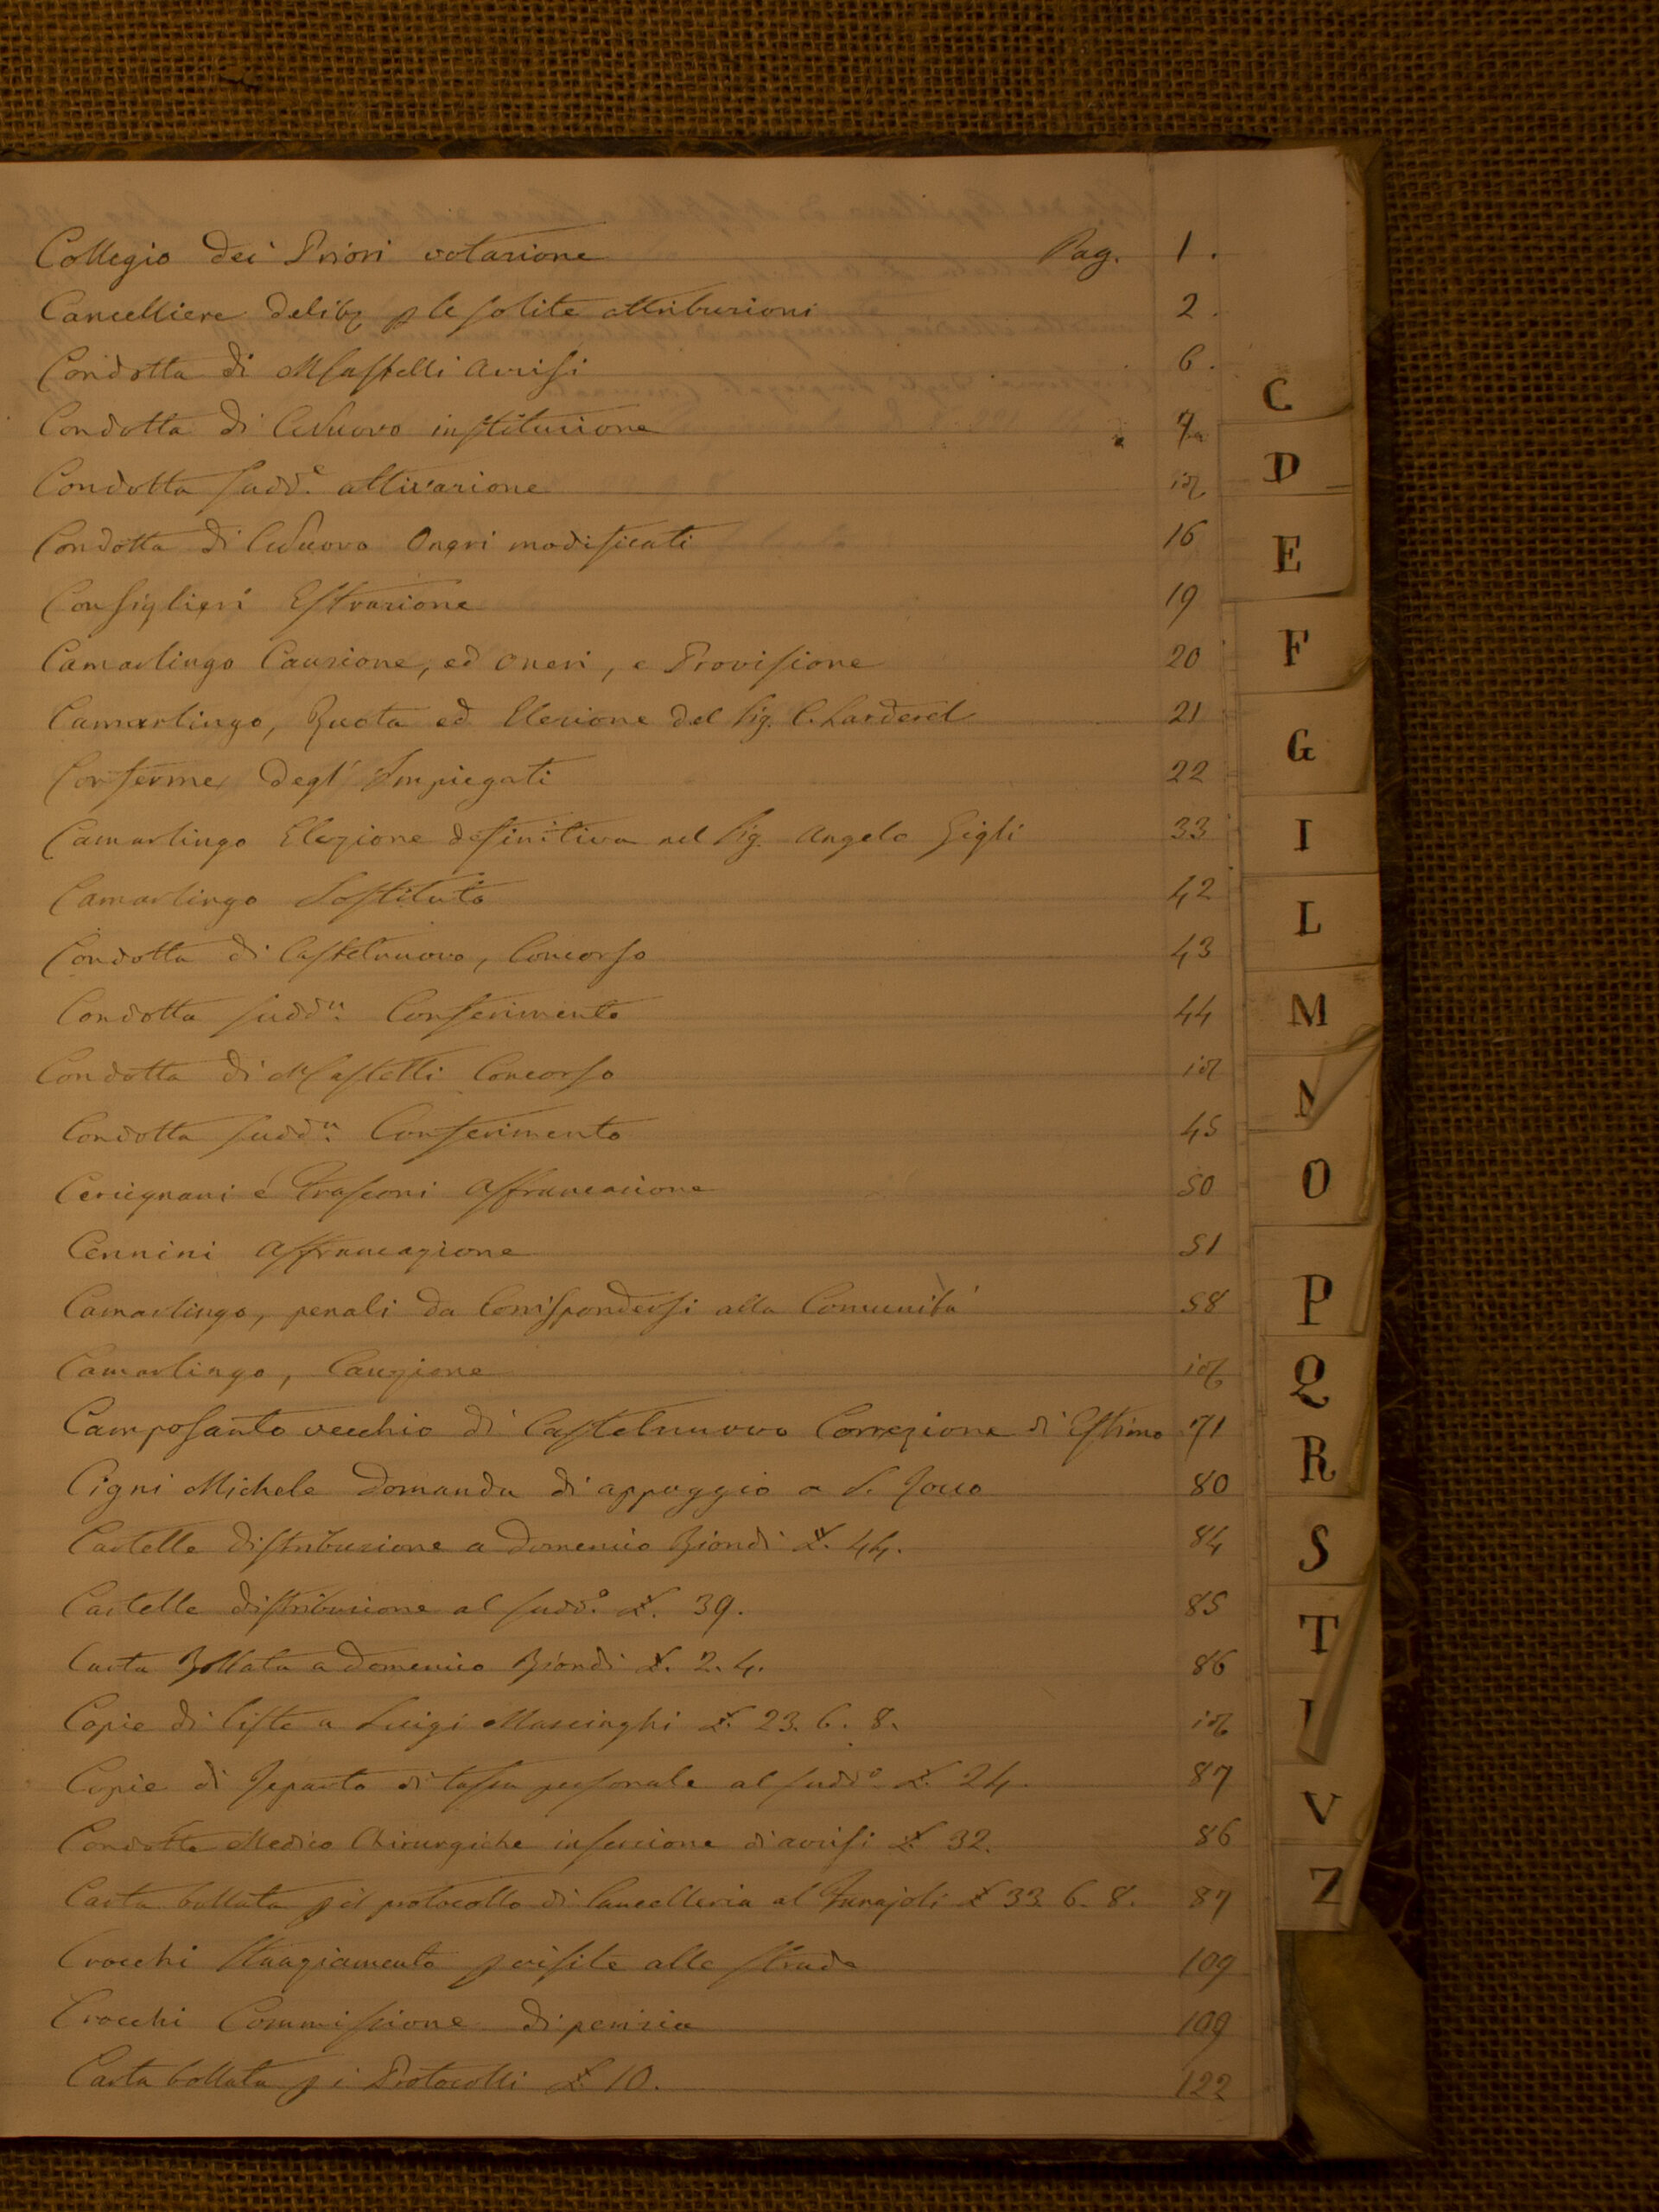 Collegio dei Priori votazione Pag. 1.
Cancelliere delib p le solite attribuzioni 2.
Condotta di MCastelli avvisi 6.
Condotta di CNuovo instituzione 7
Condotta sudd.e attivazione id
Condotta di CNuovo Oneri modificati 16
Consiglieri Estrazione 19
Camarlingo Cauzione, ed oneri, e Provisione 20
Camarlingo, Quota ed Elezione del Sig. C. Larderel 21
Conferme degl' Impiegati 22
Camarlingo Elezione definitiva nel Sig. Angelo Gigli 33
Camarlingo Sostituto 42
Condotta di Castelnuovo, Concorso 43
Condotta sudd.a Conferimento 44
Condotta di MCastelli Concorso id
Condotta sudd.a Conferimento 45
Cercignani e Frasconi affrancazione 50
Cennini affrancazione 51
Camarlingo, penali da Corrispondersi alla Comunità 58
Camarlingo, Cauzione id
Camposanto vecchio di Castelnuovo Correzione di Estimo 71
Cigni Michele Domanda di appoggio a S. 80
Cartelle distribuzione a Domenico Biondi £. 44. 84
Cartelle distribuzione al sudd.o £. 39. 85
Carta Bollata a Domenico Biondi £. 2. 4. 86
Copie di liste a Luigi Mascinghi £. 23. 6. 8. id
Copie di Reparto di tassa personale al sudd.o £. 24. 87
Condotte Medico Chirurgiche inserzione di avvisi £ 32. 86
Carta bollata p il protocollo di Cancelleria al Funajoli £ 33. 6. 8. 87
Crocchi p visite alle strade 109
Crocchi Commissione di perizia 109
Carta bollata p i Protocolli £ 10. 122
C
D
E
F
G
I
L
M
N
O
P
Q
R
S
T
V
Z